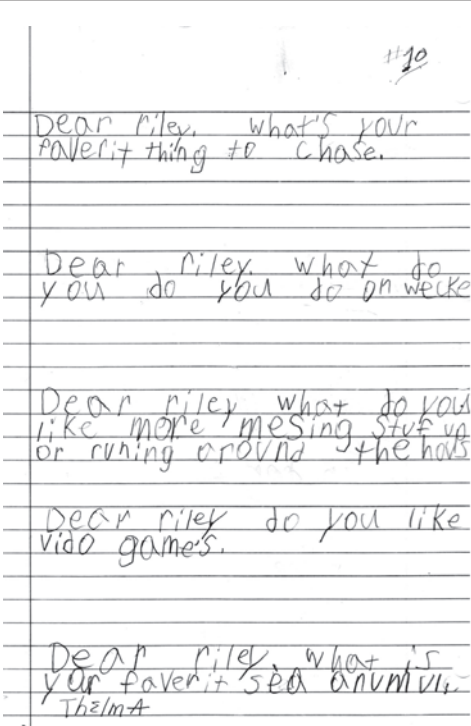 #10
Dear riley. what's your
faverit thing to chase.
Dear riley. what do
you do you do on wecke
Dear riley what do you
like more mesing stuf up
or runing around the hous
Dear riley do you like
vido games.
Dear riley. what is
yar faverit sea anumul.
Thelma